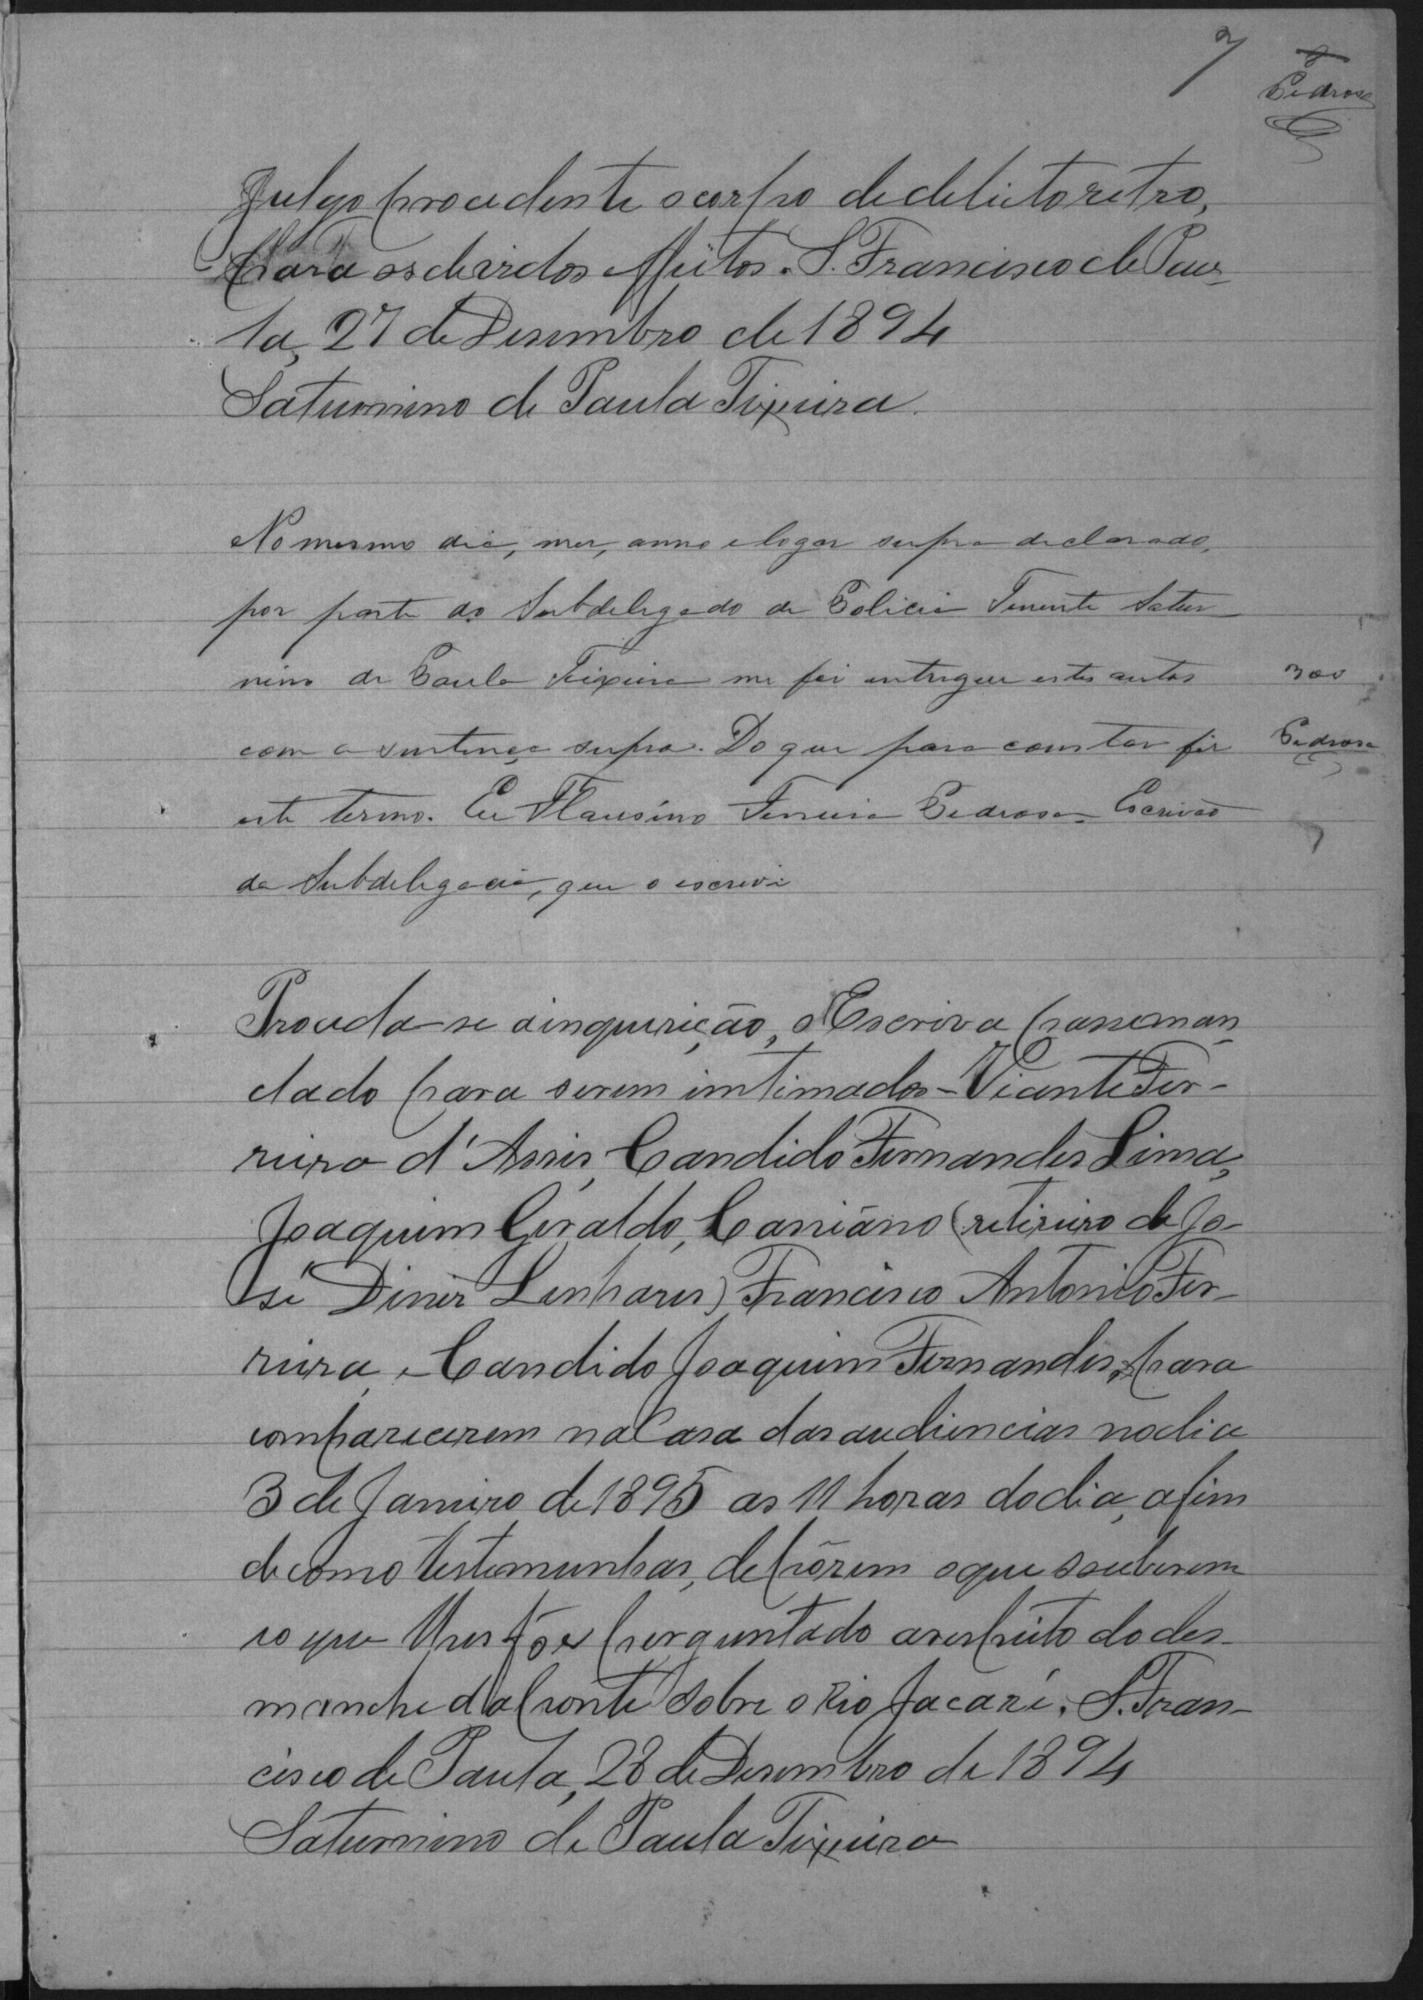 7
Pedrosa
Julgo procedente o corpo de delicto retro,
para os devidos effeitos. S. Francisco de Pau-
la, 27 de Desembro de 1894
Saturnino de Paula Teixeira
No mesmo dia, mes, anno e logar supra declarado,
por parte do Subdelegado de Policia Tenente Satur
nino de Paula Teixeira me foi entregue estes autos
300
com a sentença supra. Do que para constar fiz
Pedrosa
este termo. Eu Flausino Ferreira Pedrosa Escrivão
da Subdelegacia, que o escrevi
Proceda-se a inquirição, o Escriva passe man-
dado para serem intimados - Vicente Fer-
reira d'Assis, Candido Fernandes Lima,
Joaquim Geraldo, Cassiano (retireiro de Jo-
sé Diniz Linhares) Francisco Antonio Fer-
reira, e Candido Joaquim Fernandes, para
comparecerem na Casa das audiencias no dia
3 de Janeiro de 1895 as 11 horas do dia, afim
de como testemunhas, depôrem o que souberem
eo que lhes fôr perguntado a respeito do des-
manche da ponte sobre o Rio Jacaré. S. Fran-
cisco de Paula, 28 de Desembro de 1894
Saturnino de Paula Teixeira